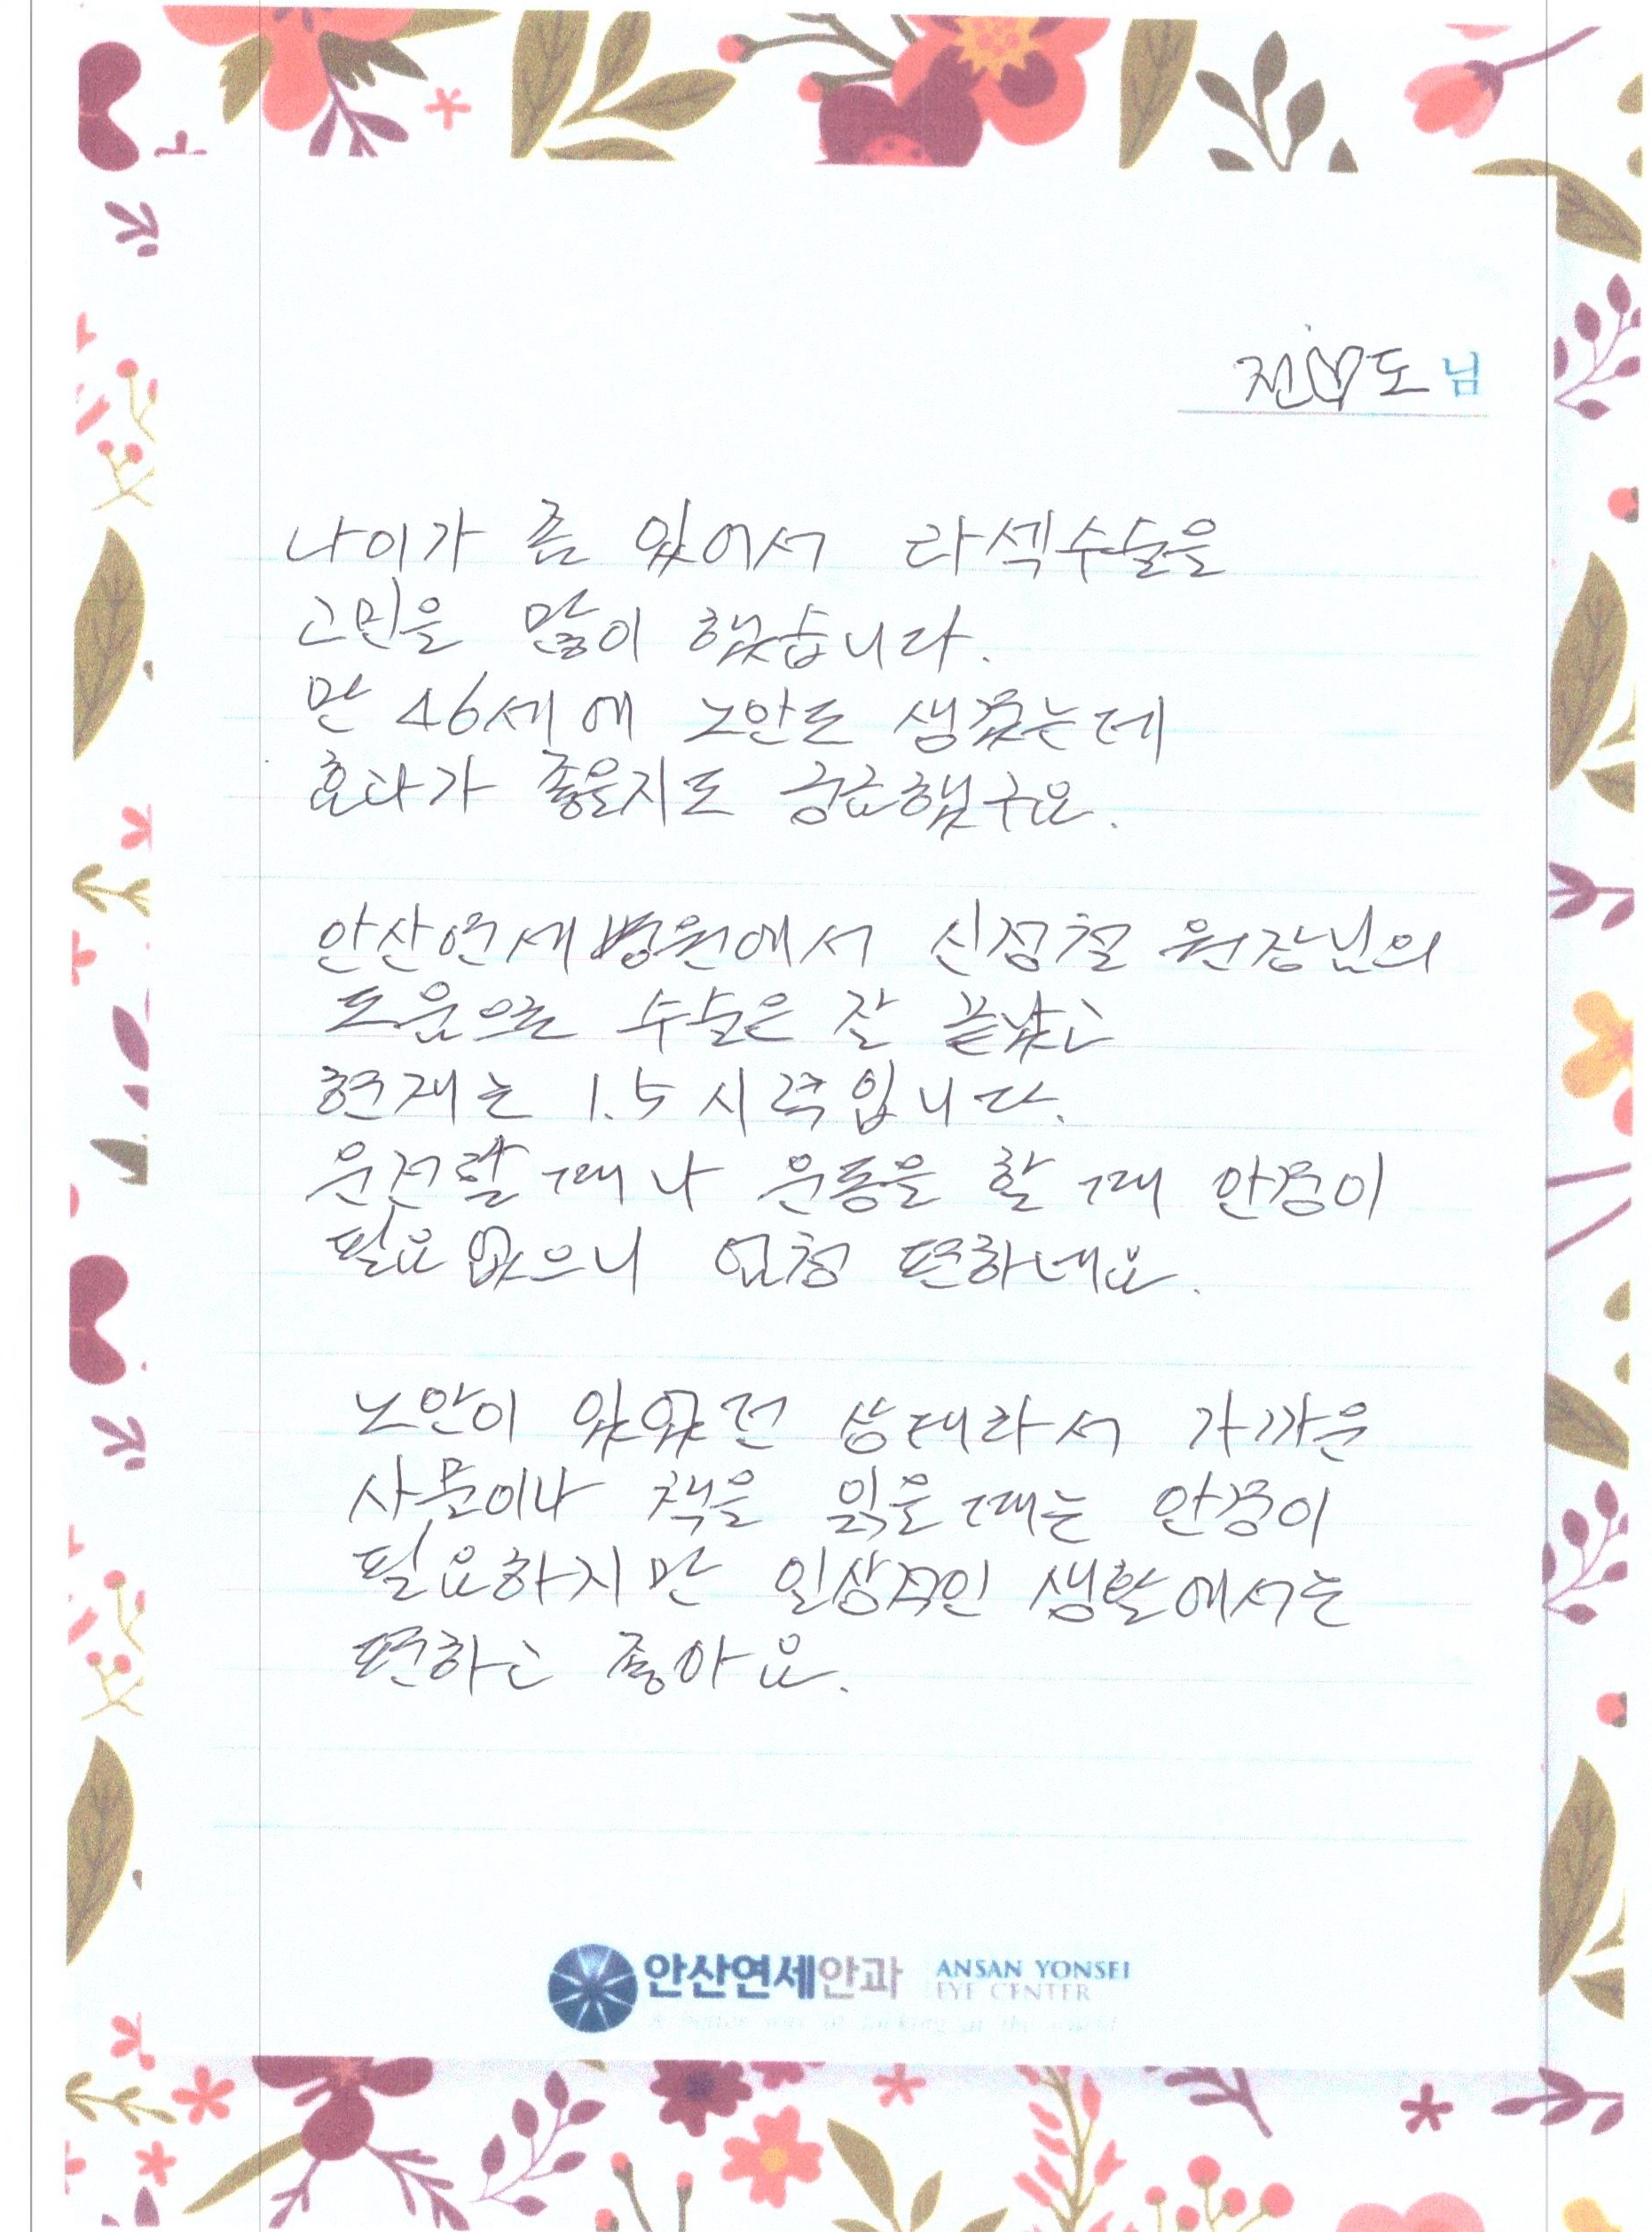 전♡도 님
나이가 좀 있어서 라섹수술을
고민을 많이 했습니다.
만 46세에 노안도 생겼는데
효과가 좋을지도 궁금했구요.
안산연세병원에서 신정철 원장님의
도움으로 수술은 잘 끝났고
현재는 1.5 시력입니다.
운전할 때나 운동을 할 때 안경이
필요없으니 엄청 편하네요.
노안이 있었던 상태라서 가까운
사물이나 책을 읽을 때는 안경이
필요하지만 일상적인 생활에서는
편하고 좋아요.
안산연세안과 ANSAN YONSEI
EYE CENTER